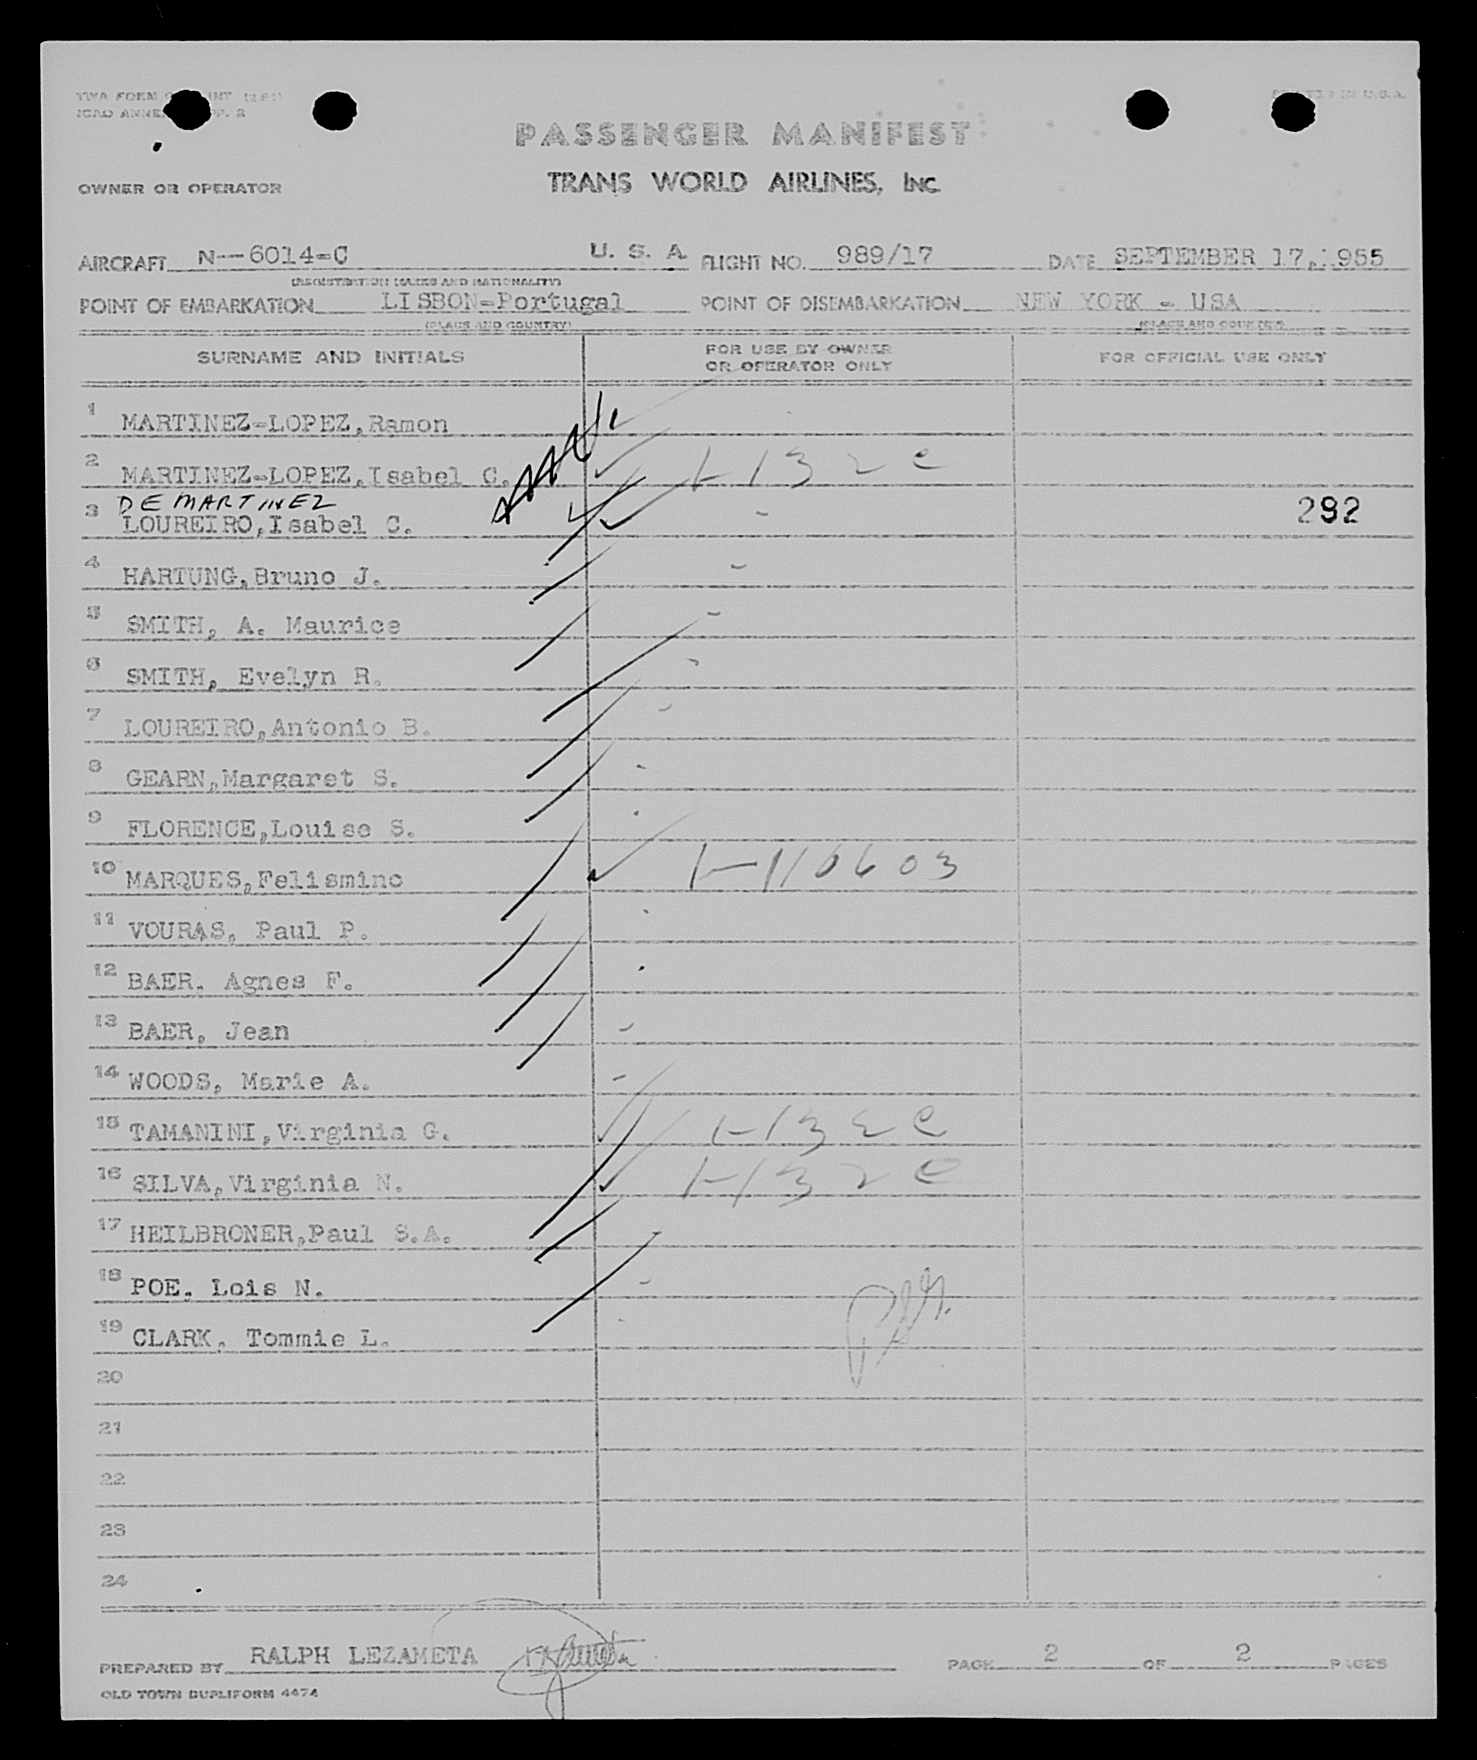 PASSENGER MANIFEST
OWNER OR OPERATOR TRANS WORLD AIRLINES, INC.
AIRCRAFT N--6014-C U. S. A FLIGHT NO. 989/17 DATE SEPTEMBER 17,1955
(REGISTRATION MARKS AND NATIONALITY)
POINT OF EMBARKATION LISBON-Portugal POINT OF DISEMBARKATION NEW YORK - USA
(PLACE AND COUNTRY) (PLACE AND COUNTRY)
SURNAME AND INITIALS FOR USE BY OWNER OR OPERATOR ONLY FOR OFFICIAL USE ONLY
1 MARTINEZ-LOPEZ,Ramon
2 MARTINEZ-LOPEZ,Isabel C.
DE MARTINEZ
3 LOUREIRO,Isabel C. 292
4 HARTUNG,Bruno J.
5 SMITH, A. Maurice
6 SMITH, Evelyn R.
7 LOUREIRO,Antonio B.
8 GEARN,Margaret S.
9 FLORENCE,Louise S.
10 MARQUES,Felismino 1-110603
11 VOURAS, Paul P.
12 BAER. Agnes F.
13 BAER, Jean
14 WOODS, Marie A.
15 TAMANINI,Virginia G.
16 SILVA,Virginia N.
17 HEILBRONER,Paul S.A.
18 POE. Lois N.
19 CLARK. Tommie L.
20
21
22
23
24
PREPARED BY RALPH LEZAMETA PAGE 2 OF 2 PAGES
OLD TOWN DUPLIFORM 4474